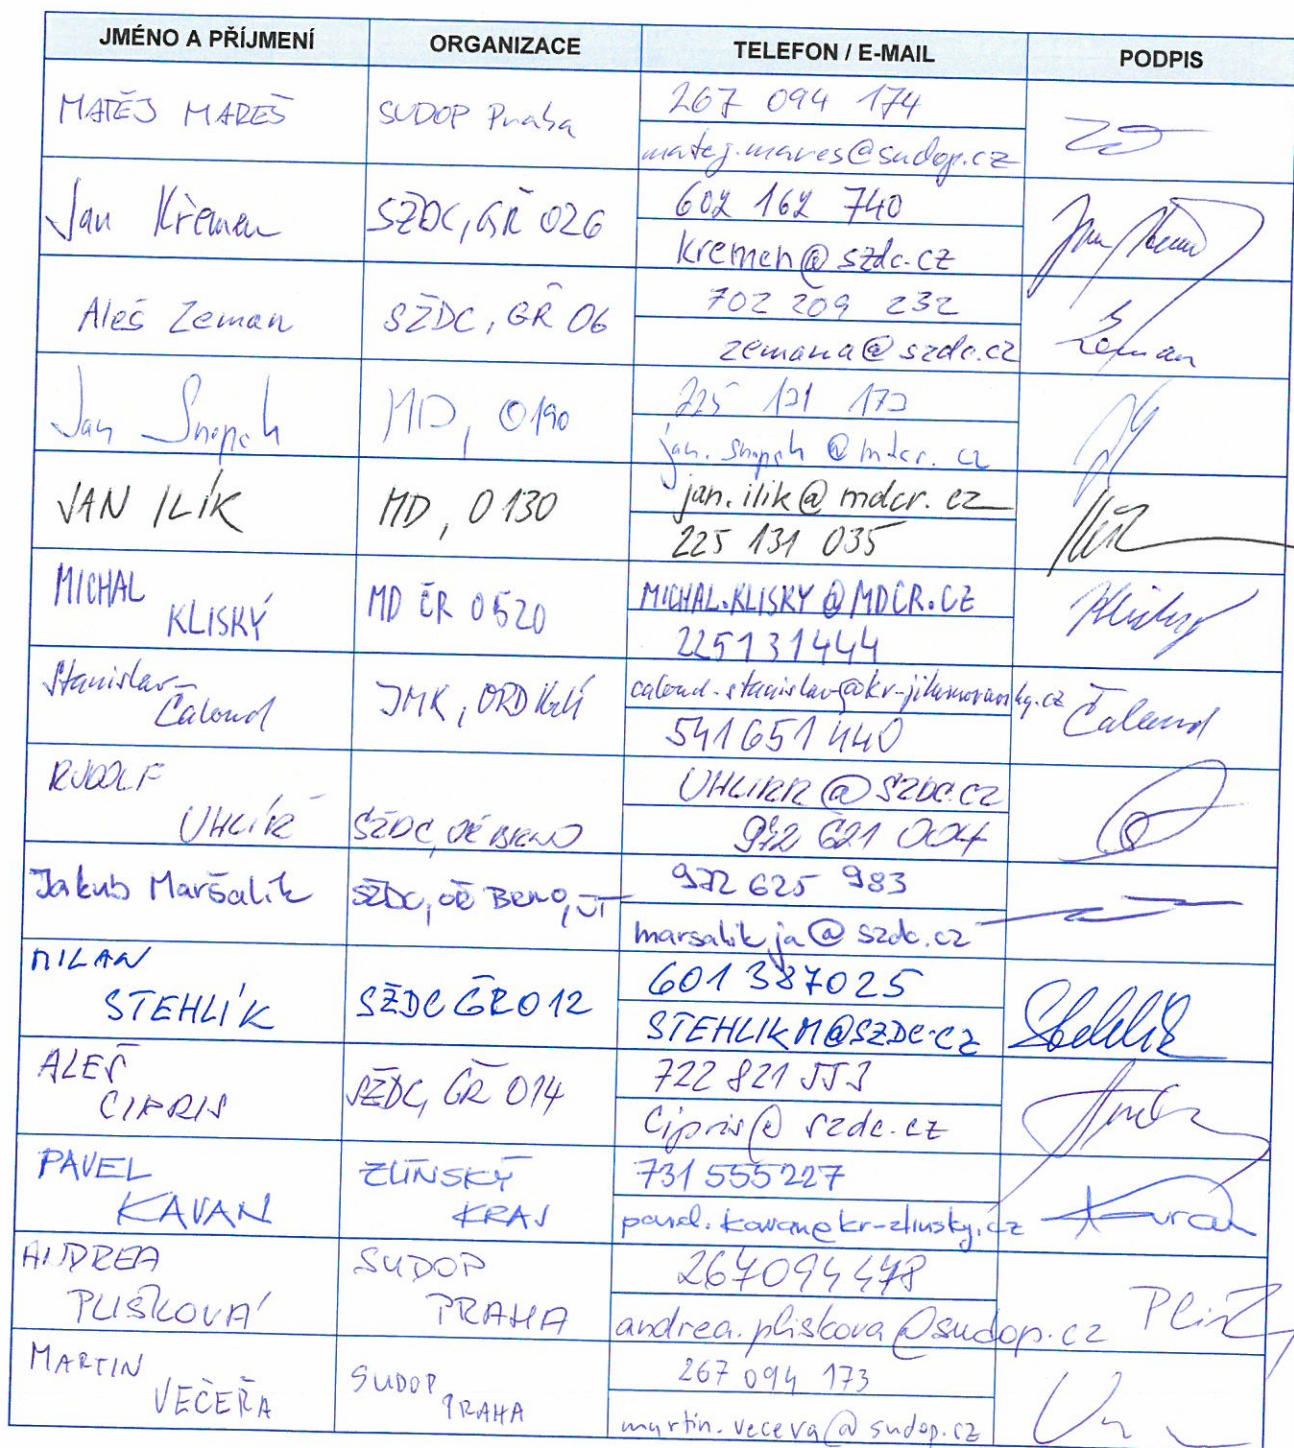 JMÉNO A PŘÍJMENÍ ORGANIZACE TELEFON / E-MAIL PODPIS
MATĚJ MAREŠ SUDOP Praha 267 094 174
matej.mares@sudop.cz
Jan Křemen SŽDC, GŘ 026 602 162 740
kremen@szdc.cz
Aleš Zeman SŽDC, GŘ 06 702 209 232
zemana@szdc.cz Zeman
Jan Snopch MD, O190 225 131 173
jan.snopch@mdcr.cz
JAN ILÍK MD, O 130 jan.ilik@mdcr.cz
225 131 035
MICHAL
KLISKÝ MD ČR O520 MICHAL.KLISKY@MDCR.CZ Klisky
225131444
Stanislav
Čaloud JMK, ORD caloud.stanislav@kr-jihomoravsky.cz Čaloud
541651440
RUDOLF
UHLÍŘ SŽDC, OŘ BRNO UHLIRR@SZDC.CZ
972 621 004
Jakub Maršalík SŽDC, OŘ Brno, JT 972 625 983
marsalik.ja@szdc.cz
MILAN
STEHLÍK SŽDC GŘ O12 601 387025
STEHLIKM@SZDC.CZ Stehlík
ALEŠ
CIPRIS SŽDC, GŘ O14 722 821 553
Cipris@szdc.cz
PAVEL
KAVAN ZLÍNSKÝ
KRAJ 731 555227
pavel.kavan@kr-zlinsky.cz Kavan
ANDREA
PLIŠKOVÁ SUDOP
PRAHA 267094478
andrea.pliskova@sudop.cz
MARTIN
VEČEŘA SUDOP
PRAHA 267 094 173
martin.vecera@sudop.cz